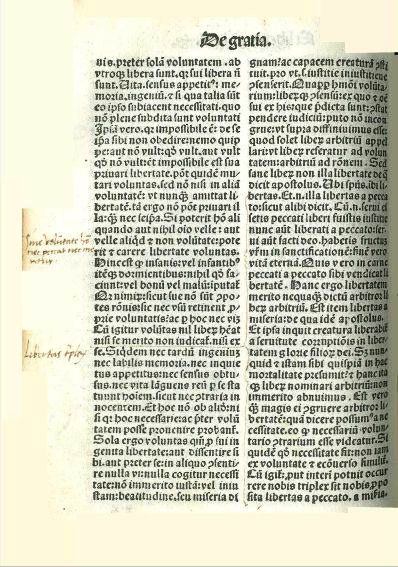 De gratia.
nis. preter solā voluntatem. ab
vtroq; libera sunt. q; sui libera nō
sunt. Uita. sensus appetit⁹: me⸗
moria. ingeniū. & si qua talia sūt
eo ipso subiacent necessitati. quo
nō plene subdita sunt voluntati
Ipsā vero. q; impossibile ē: de se
ipsa sibi non obedire: nemo quip
pe: aut nō vult qd vult. aut vult
qd nō vult: et impossibile est sua
priuari libertate. pōt quidē mu⸗
tari voluntas. sed nō nisi in aliā
voluntatē: vt nunq̄ amittat li⸗
bertatē. tā ergo nō pōt priuari il
la: q̄ nec seipsa. Si poterit hō ali
quando aut nihil oīo velle: aut
velle aliqd & non voluntate: pote
rit & carere libertate voluntas.
Hinc est q insanis: vel infantib⁹
itēq; dormientibus: nihil qd fa⸗
ciunt: vel bonū vel malū: iputat̄
Q nimirū: sicut sue nō sūt 9po⸗
tes rōnis: sic nec vsū retinent p⸗
prie voluntatis
Cū igitur volūtas nil liberū hēat
nisi se merito non iudicat̄. nisi ex
se. Siqdem nec tardū ingeniū
nec labilis memoria. nec inquie
tus appetitus: nec sensus obtu⸗
sus. nec vita lāguens reū p se sta
tuunt hoiem. sicut nec 9traria in
nocentem. Et hoc nō ob aliō: ni
si q hoc necessarie: ac pter volū
tatem posse prouenire probant̄.
Sola ergo voluntas qm p sui in
genita libertate: aut dissentire si
bi. aut preter se: in aliquo 9senti⸗
re nulla vi: nulla cogitur necessi
tate: nō immerito iustā: vel iniu
stam: beatitudine. seu miseria di
gnam: ac capacem creaturā 9sti
tuit. pro vt. s. iustitie iniustitieue
9senserit. Quapp hmōi volūta⸗
rium: liberūq; 9sensū: ex quo & oē
sui ex hisque pdicta sunt: 9stat
pendere iudiciū: puto nō incon⸗
grue: vt supra diffiniuimus esse:
quod solet liberū arbitriū appel
lari: vt liberū reseratur ad volun
tatem: arbitriū ad rōnem. Sed
sane liberū non illa libertate de q
dicit apostolus. Ubi spūs. ibi li⸗
bertas. Et. n. illa libertas a pecca
to: sicut alibi dicit. Cū. n. serui es
setis peccati liberi fuistis iustitie
nunc aūt liberati a peccato: ser⸗
ui aūt facti deo. habetis fructus
vr̄m in sanctificationē: finē vero
vitā eternā. Quis vero in carne
peccati a peccato sibi vendicat li
bertatē. Hanc ergo libertatem
merito nequaq̄ dictū arbitror li
berū arbitriū. Est item libertas a
miseria: de qua idē apostolus.
Et ipsa inquit creatura liberabit̄
a seruitute corruptiōis in liber⸗
tatem glorie filiorū dei. Sz nun
quid & istam sibi quispiā in hac
mortalitate presumit: & ex hac
q liberū nominari arbitriū: non
immerito abnuimus. Est vero
q̄ magis ei 9gruere arbitror: li⸗
bertatē: quā dicere possum⁹ a ne
cessitate. eo q necessariū volun⸗
tario 9trarium esse videatur. Si
quidē qd necessitate fit: non iam
ex voluntate & ecōuerso similit̄.
Cū igit̄: put interi potuit occur
rere nobis triplex sit nobis, ppo
sita libertas a peccato, a miseria.
Sine voluntate hō
nec peccat nec me
retur
Libertas tplex